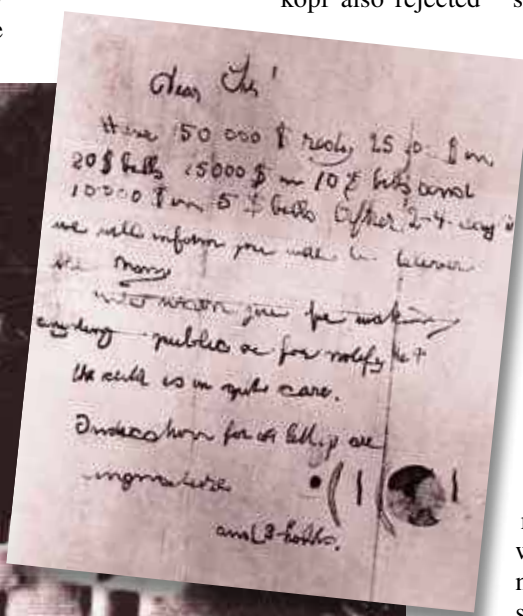 kopi also rejected s
e
Dear Sir!
Have 50 000 $ redy 25 000 $ in
20 $ bills 15000 $ in 10 $ bills and
10000 $ in 5 $ bills After 2-4 days
we will inform you were to deliver
the Mony
We warn you for making
anyding public or for notify the
the child is in gute care.
Indication for all letters are
singnature
and 3 holds.
r
v
r
s